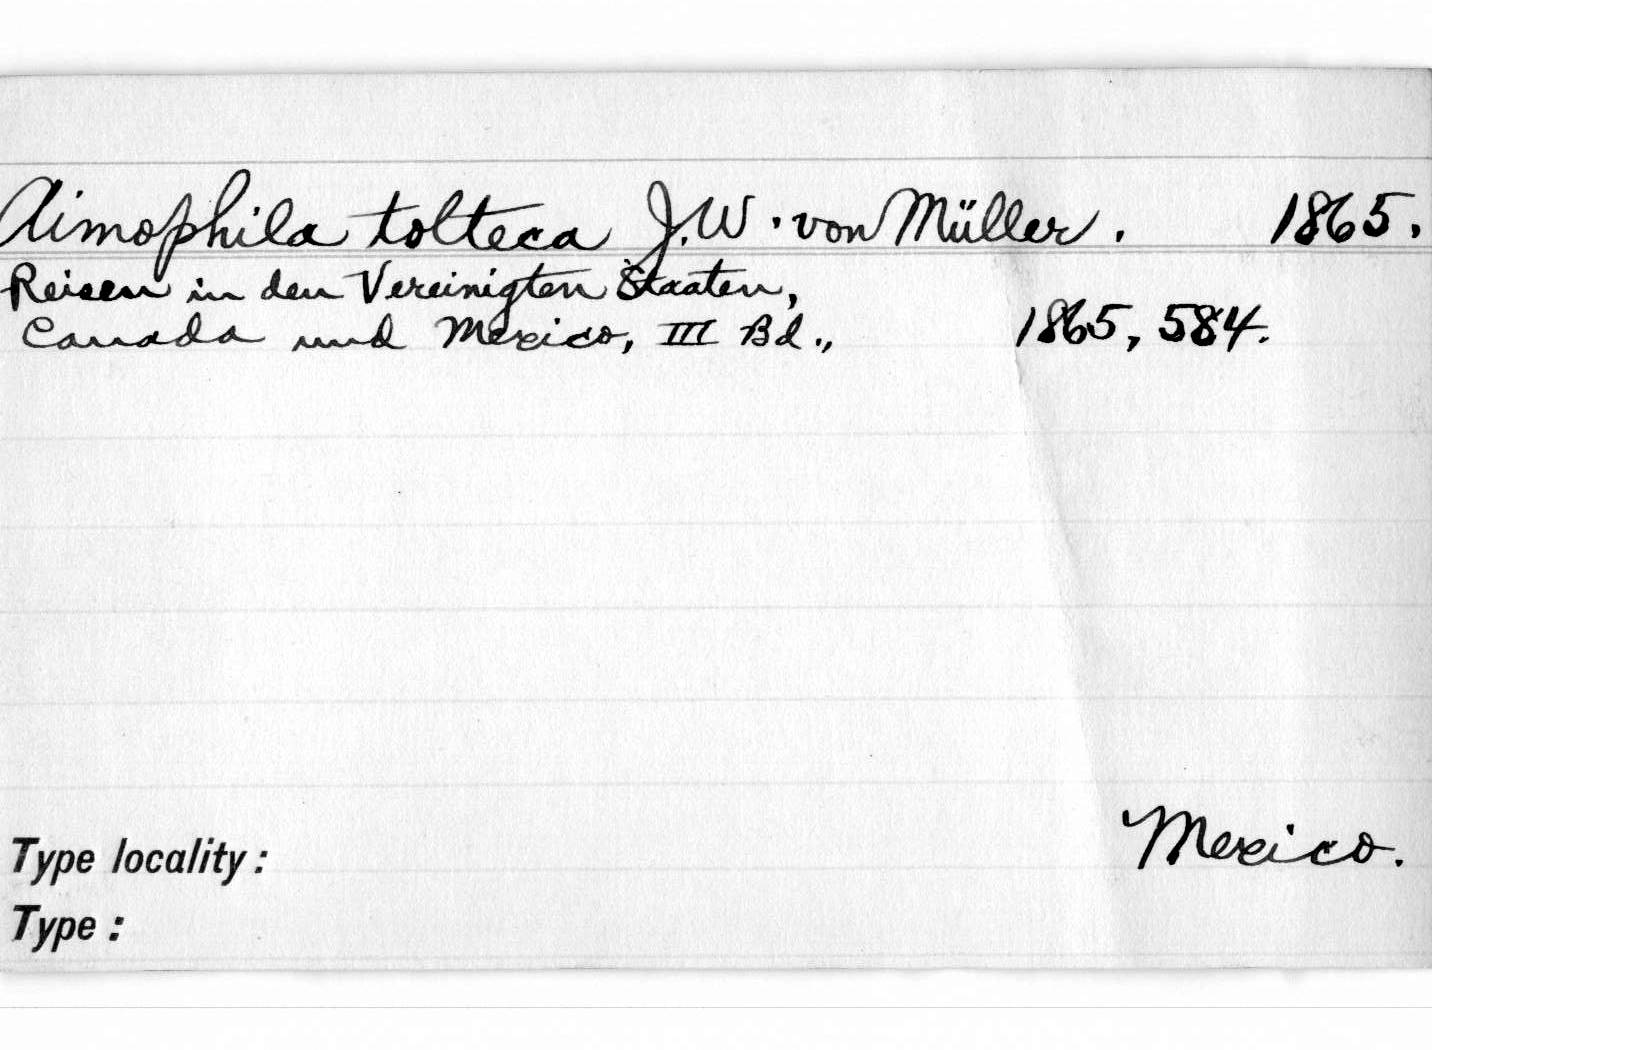 Aimophila tolteca J.W. von Müller. 1865.
Reisen in den Vereinigten Staaten,
Canada und Mexico, III Bd., 1865, 584.
Type locality: Mexico.
Type: